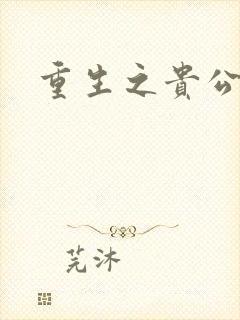 重生之貴公
芫沐